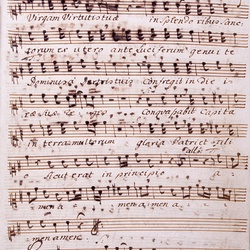 Virgam Virtutis tuæ in splendoribus sanc
torum ex utero ante Luciferum genui te
Dominus a dextris tuis Confregit in die
iræ suæ Conquasabit capita
in terra multorum gloria Patri et fili
o Sicut erat in principio a
men a men a men
men amen